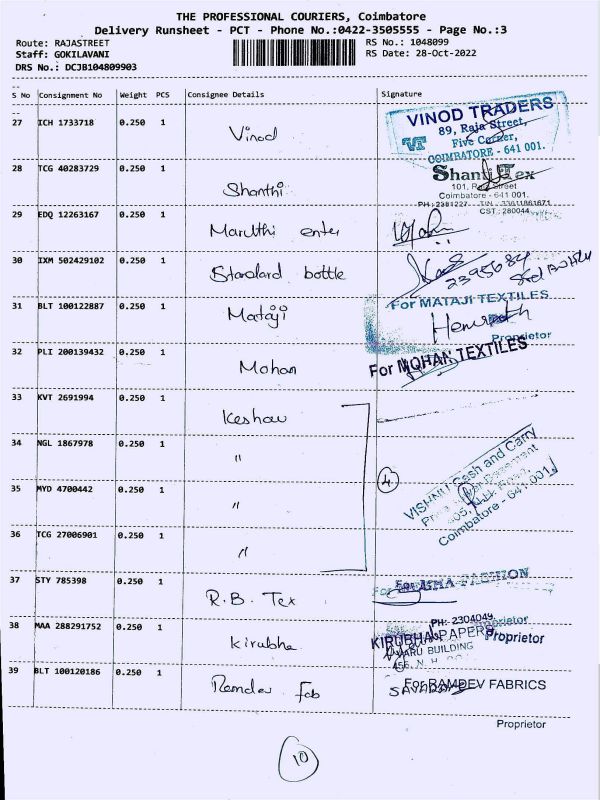 THE PROFESSIONAL COURIERS, Coimbatore
Delivery Runsheet - PCT - Phone No.:0422-3505555 - Page No.:3
Route: RAJASTREET
Staff: GOKILAVANI
DRS No.: DCJB104809903
RS No.: 1048099
RS Date: 28-Oct-2022
S No Consignment No Weight PCS Consignee Details Signature
27 ICH 1733718 0.250 1 Vinod
VINOD TRADERS
89, Raja Street,
Five Corner,
COIMBATORE - 641 001.
28 TCG 40283729 0.250 1 Shanthi
Shanti Tex
101, Raja Street
Coimbatore - 641 001.
PH: 2381227
CST: 280044
29 EDQ 12263167 0.250 1 Maruthi enter
30 IXM 502429102 0.250 1 Standard bottle
2395684
31 BLT 100122887 0.250 1 Mataji
For MATAJI TEXTILES
Proprietor
32 PLI 200139432 0.250 1 Mohan
For MOHAN TEXTILES
33 KVT 2691994 0.250 1 Keshav
34 NGL 1867978 0.250 1 "
35 MYD 4700442 0.250 1 "
4.
VISHNU Cash and Carry
Coimbatore - 641 001
36 TCG 27006901 0.250 1 "
37 STY 785398 0.250 1 R.B. Tex
FASHION
Proprietor
38 MAA 288291752 0.250 1 Kirubha
PH: 2304049
KIRUBHA PAPERS
Proprietor
BUILDING
39 BLT 100120186 0.250 1 Ramdev Fab
For RAMDEV FABRICS
Proprietor
10